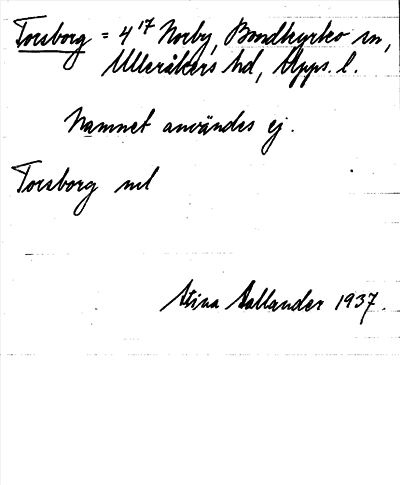 Torsborg = 4¹⁷ Norby, Bondkyrko sn,
Ulleråkers hd, Upps. l.
Namnet användes ej.
Torsborg ml
Stina Sallander 1937.